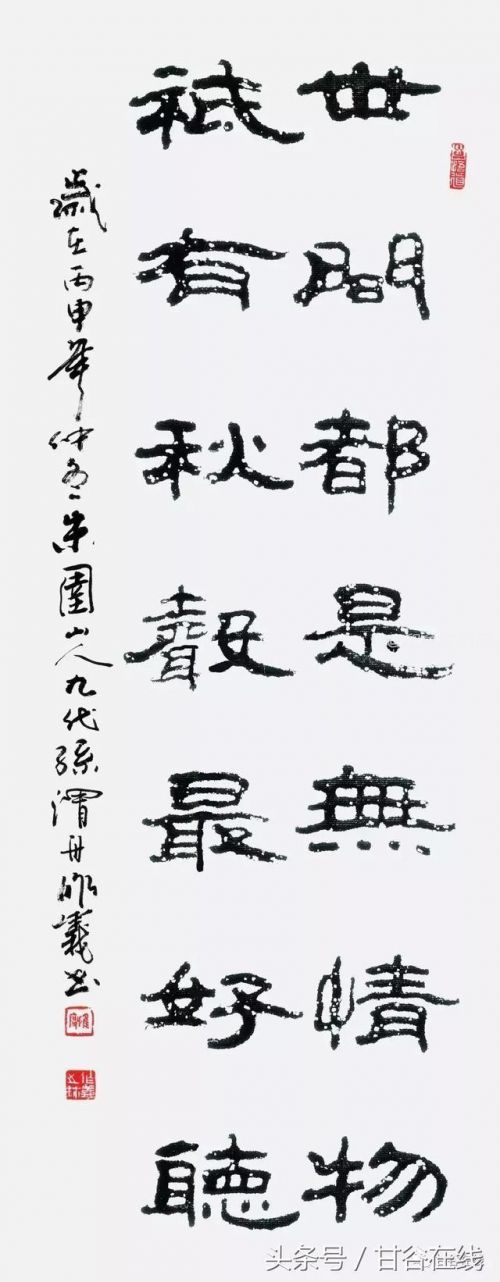 世間都是無情物
祇有秋聲最好聽
歲在丙申年仲冬朱圉山人九代孫渭舟作義书
头条号／甘谷在线